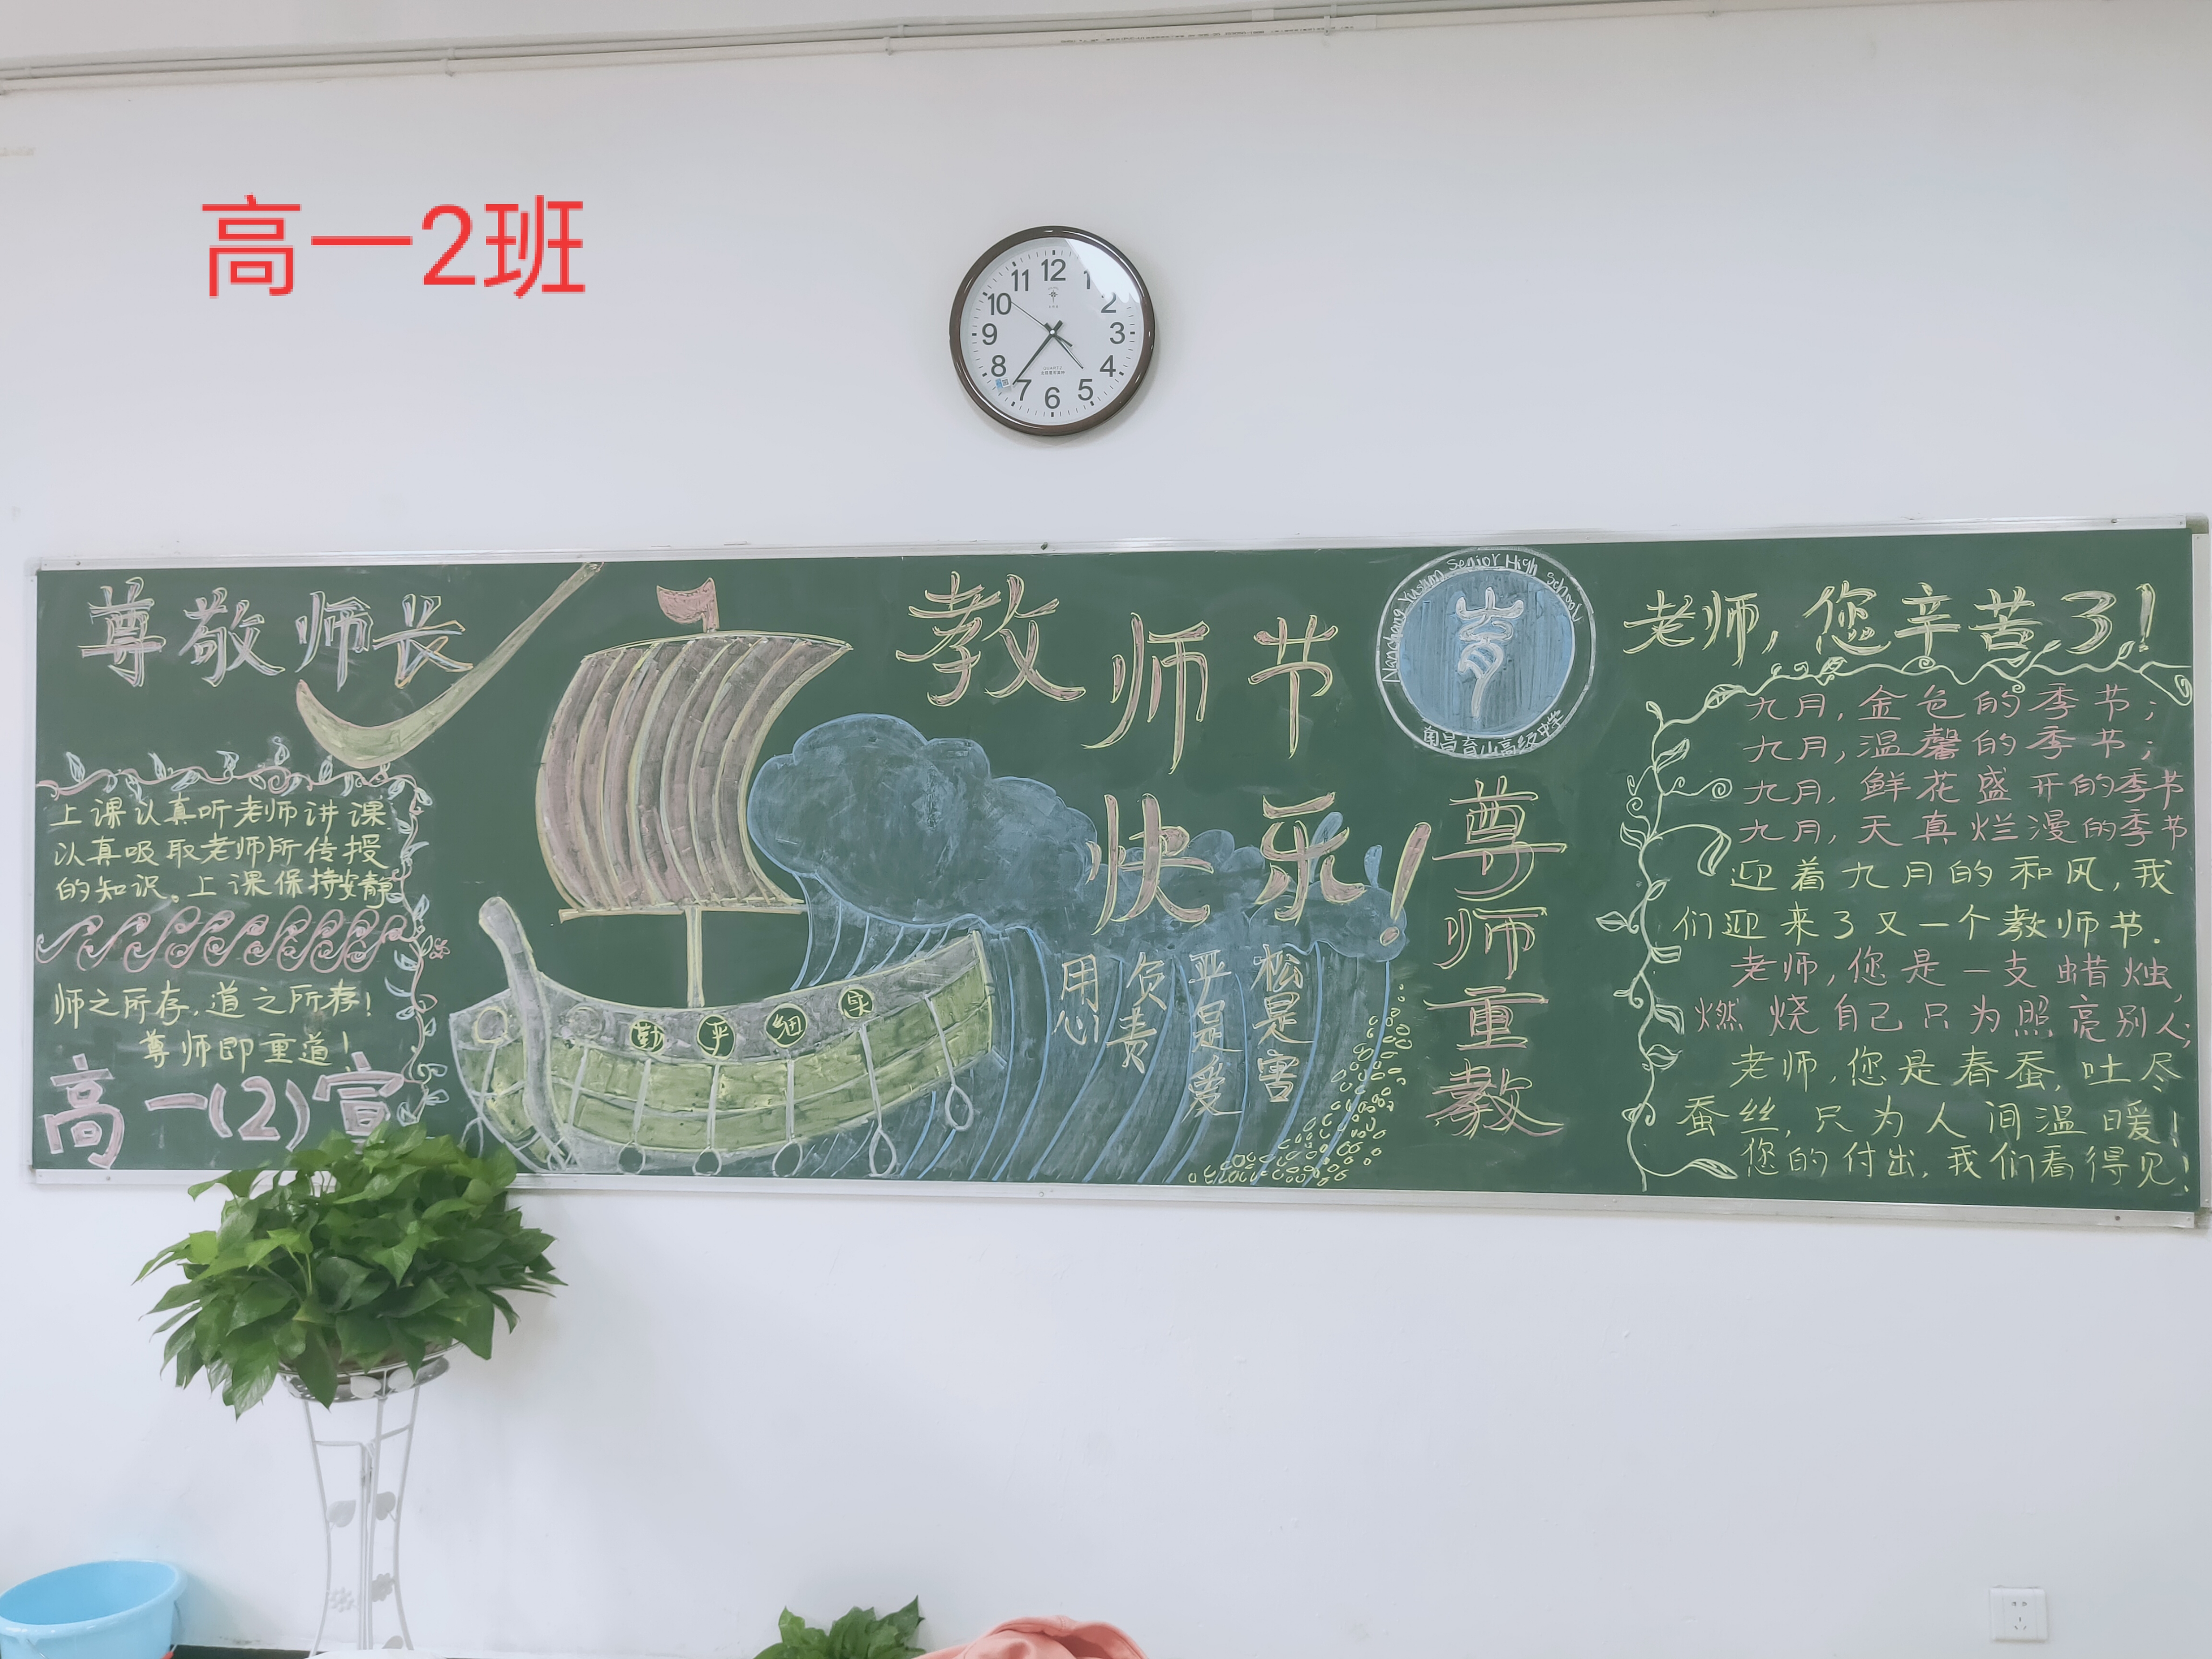 高一2班
12
11
1
10
2
9
3
8
4
7
5
6
QUARTZ
尊敬师长
上课认真听老师讲课
认真吸取老师所传授
的知识。上课保持安静
师之所存,道之所存!
尊师即重道!
高一(2)宣
勤 严 细 实
教师节
快乐!
用心
负责
严是爱
松是害
Nanchang Yushan Senior High School
育
南昌育山高级中学
尊师重教
老师,您辛苦了!
九月,金色的季节;
九月,温馨的季节;
九月,鲜花盛开的季节
九月,天真烂漫的季节
迎着九月的和风,我
们迎来了又一个教师节.
老师,您是一支蜡烛,
燃烧自己只为照亮别人;
老师,您是春蚕,吐尽
蚕丝,只为人间温暖!
您的付出,我们看得见!